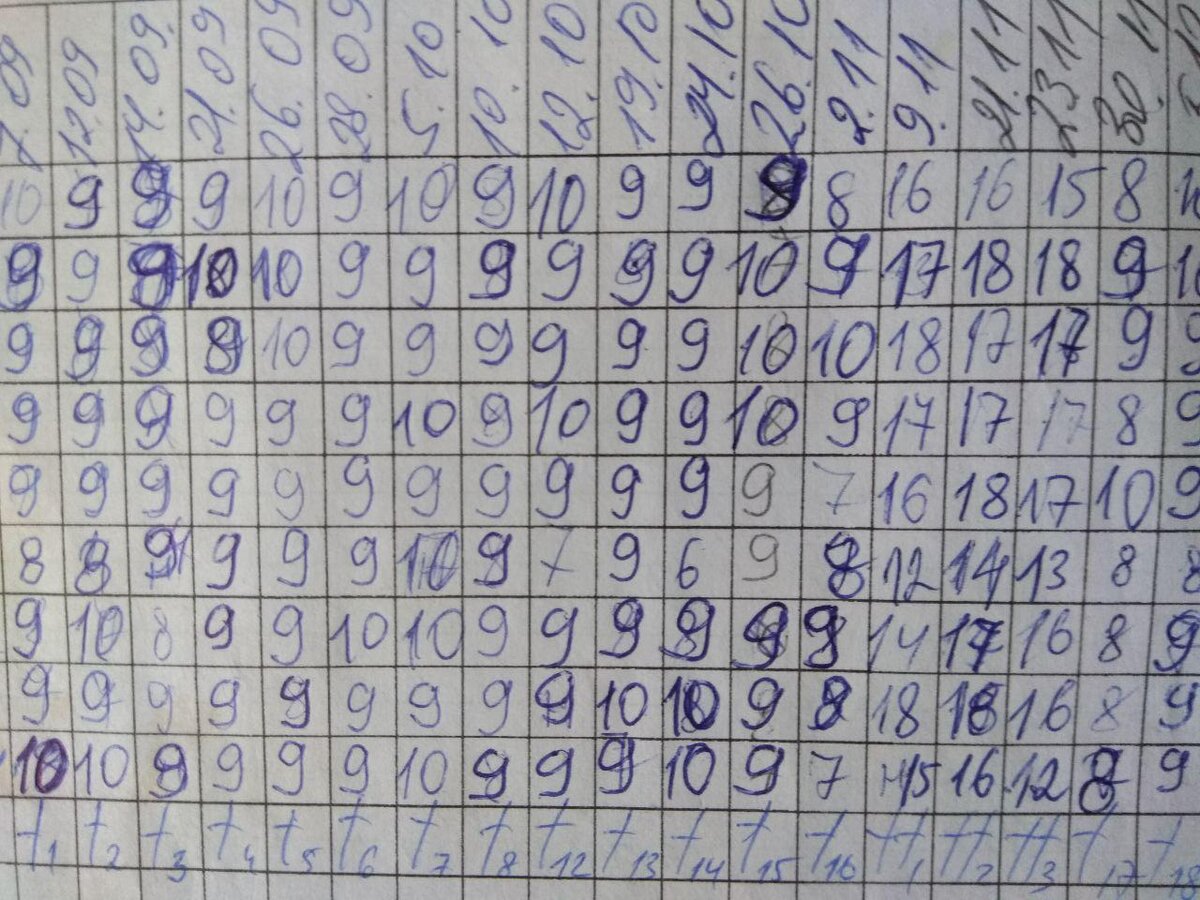 7.09 12.09 14.09. 21.09 26.09 28.09 5.10 10.10 12.10 19.10 24.10 26.10 2.11 9.11 21.11 23.11 30.11
10 9 9 9 10 9 10 9 10 9 9 9 8 16 16 15 8
9 9 9 10 10 9 9 9 9 9 9 10 9 17 18 18 9
9 9 9 9 10 9 9 9 9 9 9 10 10 18 17 17 9 9
9 9 9 9 9 9 10 9 10 9 9 10 9 17 17 17 8 9
9 9 9 9 9 9 9 9 9 9 9 9 7 16 18 17 10 9
8 8 9 9 9 9 10 9 7 9 6 9 8 12 14 13 8 8
9 10 8 9 9 10 10 9 9 9 9 9 9 14 17 16 8 9
9 9 9 9 9 9 9 9 9 10 10 9 8 18 18 16 8 9
10 10 9 9 9 9 10 9 9 9 10 9 7 15 16 12 8 9
t1 t2 t3 t4 t5 t6 t7 t8 t12 t13 t14 t15 t16 tt1 tt2 tt3 t17 t18